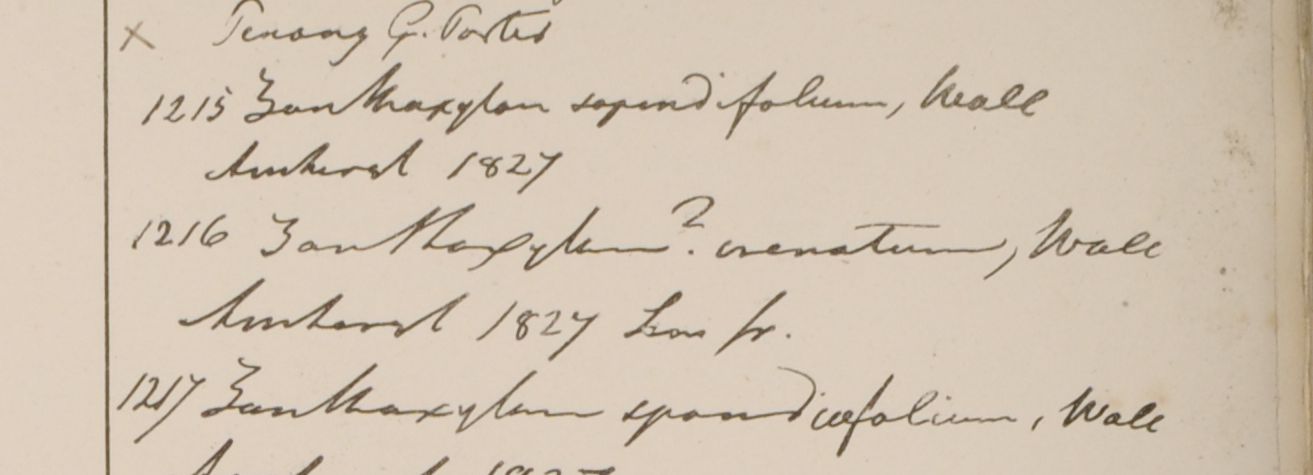 x Penang G. Porter
1215 Zanthoxylon sapindifolium, Wall
Amherst 1827
1216 Zanthoxylum? crenatum, Wall
Amherst 1827 fr.
1217 Zanthoxylum spondiaefolium, Wall
Amherst 1827